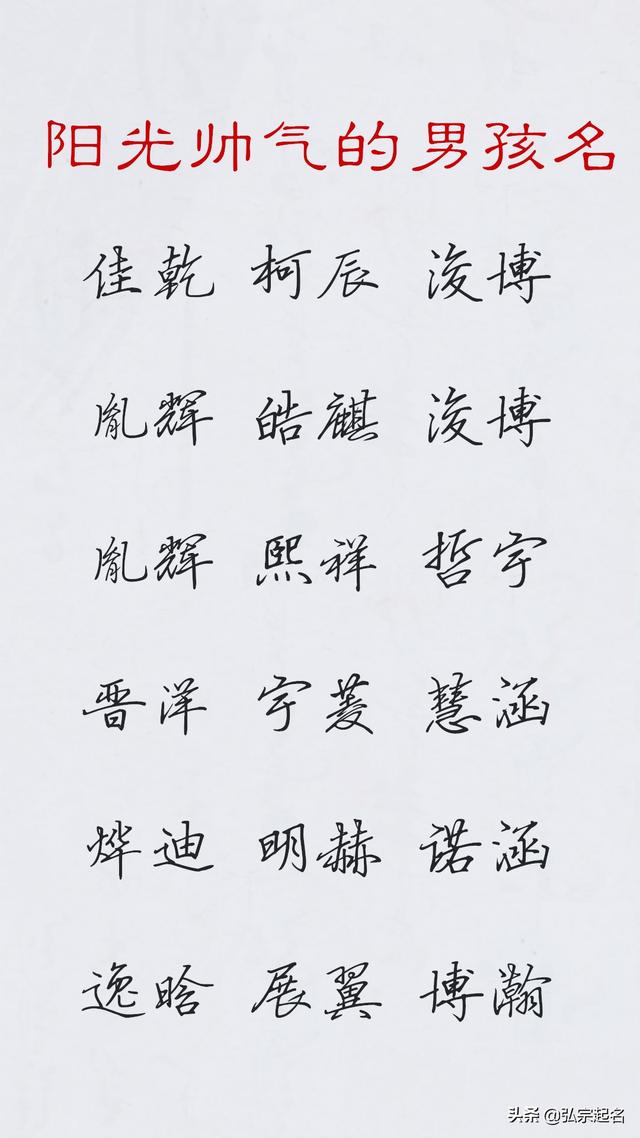 阳光帅气的男孩名
佳乾 柯辰 浚博
胤辉 皓麒 浚博
胤辉 熙祥 哲宇
晋洋 宇菱 慧涵
烨迪 明赫 诺涵
逸晗 展翼 博瀚
头条 @弘宗起名